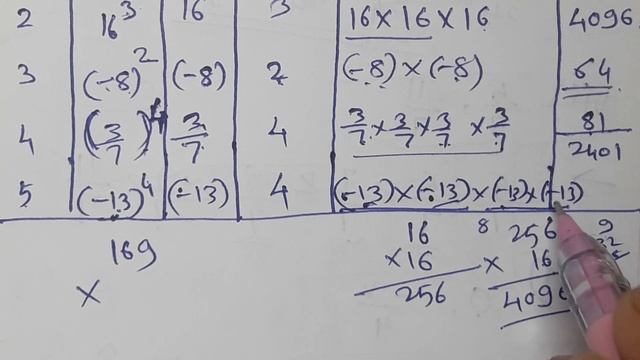 2 16³ 16 3 16 × 16 × 16 4096
3 (-8)² (-8) 2 (-8) × (-8) 64
4 (3/7)⁴ 3/7 4 3/7 × 3/7 × 3/7 × 3/7 81/2401
5 (-13)⁴ (-13) 4 (-13) × (-13) × (-13) × (-13)
169 16 8 256 9
× ×16 × 16
256 4096